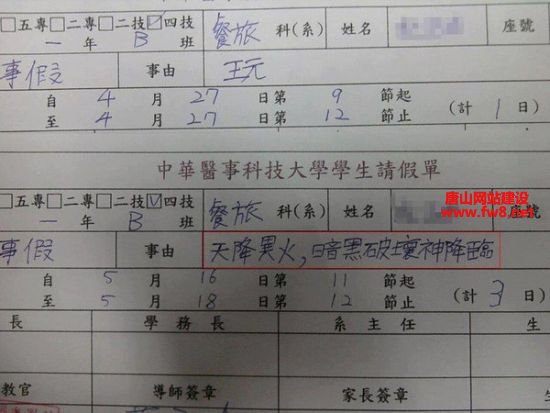 □五專□二專□二技☑四技 餐旅 科(系) 姓名 座號
一 年 B 班
事假 事由 王元
自 4 月 27 日第 9 節起 (計 1 日)
至 4 月 27 日第 12 節止
中華醫事科技大學學生請假單
□五專□二專□二技☑四技 餐旅 科(系) 姓名 座號
一 年 B 班
唐山网站建设
www.fw8.net
事假 事由 天降異火,暗黑破壞神降臨
自 5 月 16 日第 11 節起 (計 3 日)
至 5 月 18 日第 12 節止
長 學務長 系主任 生
教官 導師簽章 家長簽章